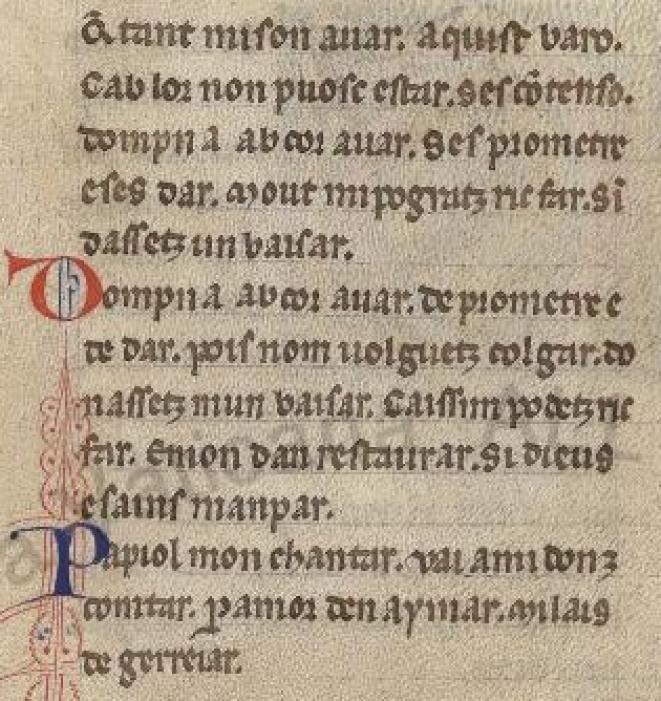 Õ tant mison auar. aquist baro.
Cab lor non puosc estar. Ses cõtenso.
Dompna ab cor auar. Ses prometre
eses dar. Mout mi pogratz ric far. Sĩ
dassetz un baisar.
Dompna ab cor auar. de prometre e
de dar. pois nom uolguetz colgar. do
nassetz mun baisar. Caissim podetz ric
far. Emon dan restaurar. Si dieus
esains manpar.
Papiol mon chantar. vai ami donz
contar. ꝑ amor den aymar. Mi lais
de gerreiar.